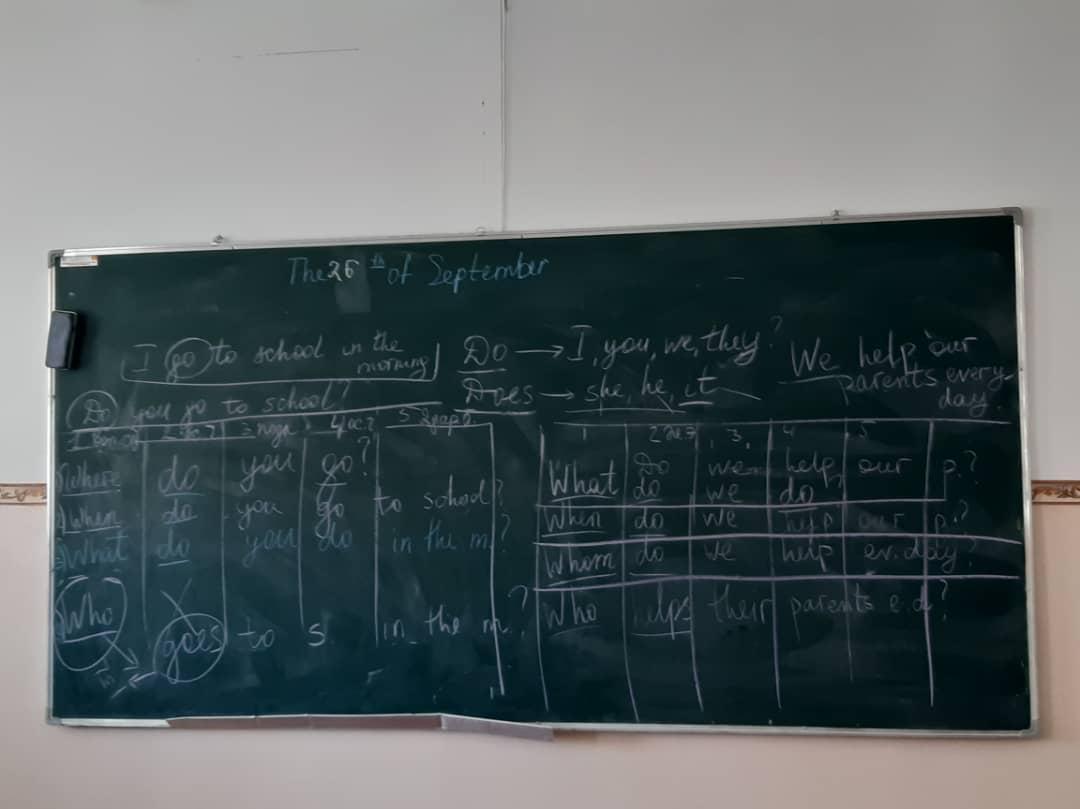 The 26th of September
I go to school in the morning
Do → I, you, we, they?
Does → she, he, it
We help our parents every day.
Do you go to school?
Where do you go?
When do you go to school?
What do you do in the m.?
Who goes to s. in the m.?
1 2 3, 4 5
Do we help our p.?
What do we do
When do we help our p.?
Whom do we help ev. day?
Who helps their parents e.d?